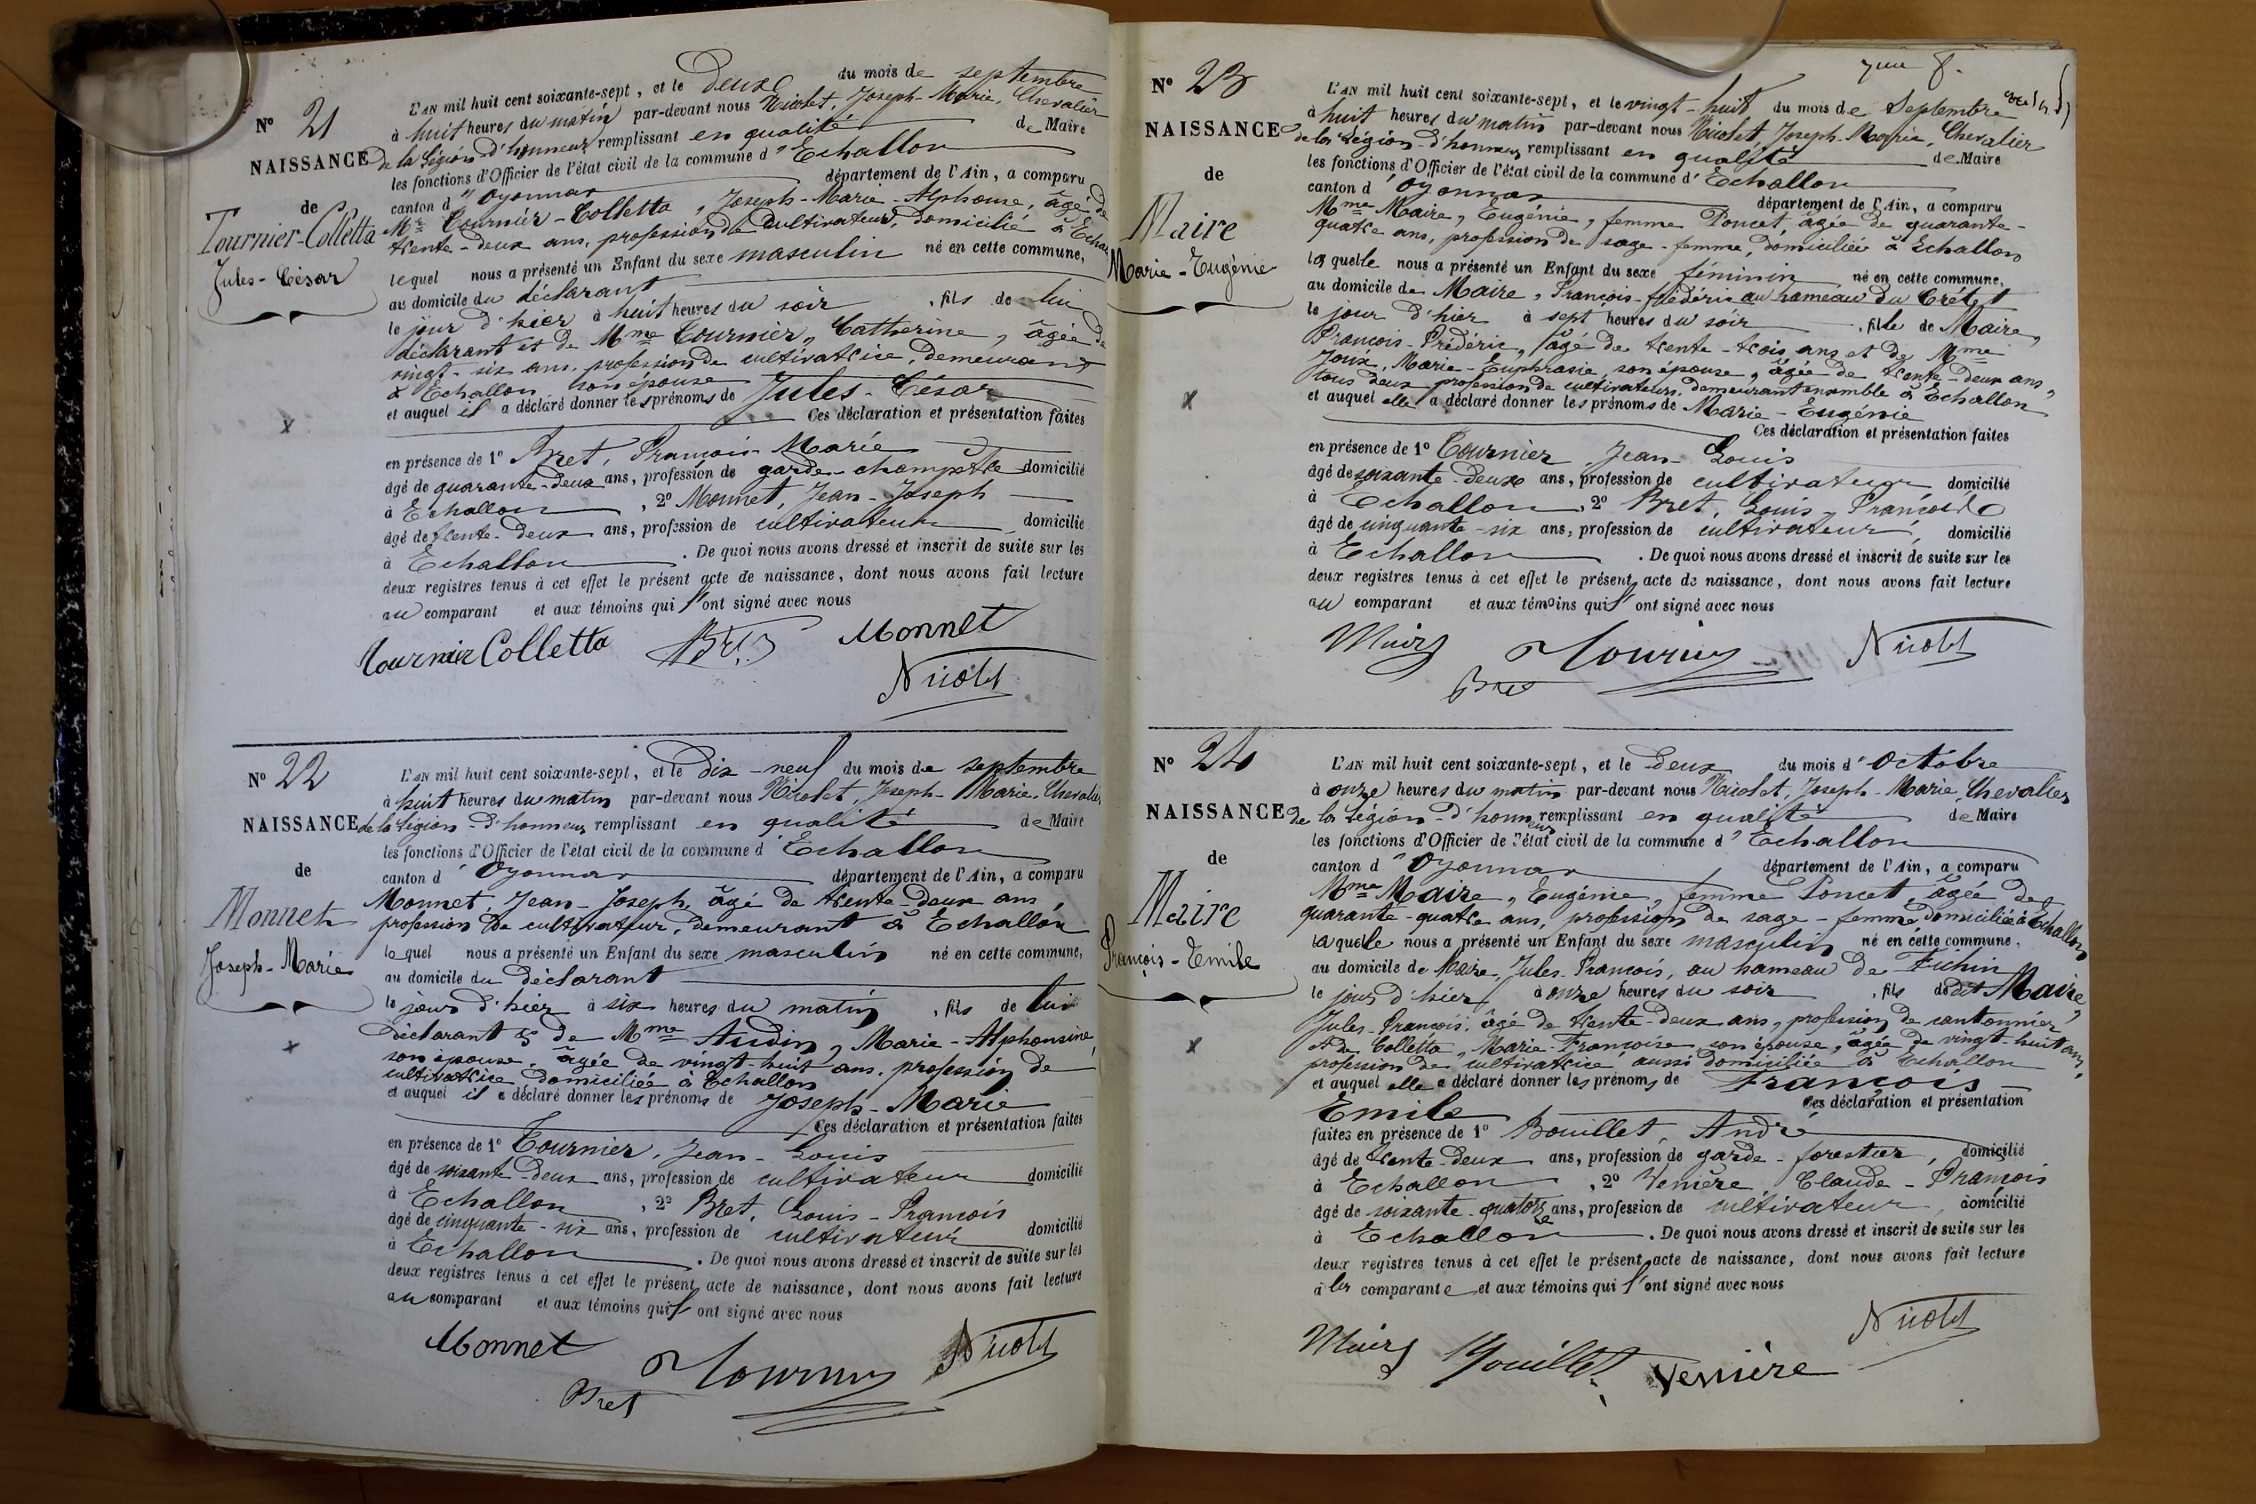 N° 21
NAISSANCE
de
Tournier-Colletta
Jules-César
L'AN mil huit cent soixante-sept, et le deux du mois de septembre
à huit heures du matin par-devant nous Nicolet, Joseph-Marie, Chevalier
de la Légion-d'honneur remplissant en qualité de Maire
les fonctions d'Officier de l'état civil de la commune d'Echallon
canton d'Oyonnax département de l'Ain, a comparu
Mr Tournier-Colletta, Joseph-Marie-Alphonse, âgé de
trente-deux ans, profession de cultivateur, domicilié à Echallon
lequel nous a présenté un Enfant du sexe masculin né en cette commune,
au domicile du déclarant
le jour d'hier à huit heures du soir, fils de lui
déclarant et de Mme Tournier, Catherine, âgée de
vingt-six ans, profession de cultivatrice, demeurant
à Echallon son épouse
et auquel il a déclaré donner les prénoms de Jules-César
Ces déclaration et présentation faites
en présence de 1° Bret, François-Marie
âgé de quarante-deux ans, profession de garde-champêtre domicilié
à Echallon, 2° Monnet, Jean-Joseph
âgé de trente-deux ans, profession de cultivateur domicilié
à Echallon. De quoi nous avons dressé et inscrit de suite sur les
deux registres tenus à cet effet le présent acte de naissance, dont nous avons fait lecture
au comparant et aux témoins qui l'ont signé avec nous
Tournier Colletta Bret Monnet
Nicolet
N° 22
NAISSANCE
de
Monnet
Joseph-Marie
L'AN mil huit cent soixante-sept, et le dix-neuf du mois de septembre
à huit heures du matin par-devant nous Nicolet, Joseph-Marie, Chevalier
de la Légion-d'honneur remplissant en qualité de Maire
les fonctions d'Officier de l'état civil de la commune d'Echallon
canton d'Oyonnax département de l'Ain, a comparu
Monnet, Jean-Joseph, âgé de trente-deux ans,
profession de cultivateur, demeurant à Echallon
lequel nous a présenté un Enfant du sexe masculin né en cette commune,
au domicile du déclarant
le jour d'hier à six heures du matin, fils de lui
déclarant & de Mme Audin, Marie-Alphonsine,
son épouse, âgée de vingt-huit ans, profession de
cultivatrice domiciliée à Echallon
et auquel il a déclaré donner les prénoms de Joseph-Marie
Ces déclaration et présentation faites
en présence de 1° Tournier, Jean-Louis
âgé de soixante-deux ans, profession de cultivateur domicilié
à Echallon, 2° Bret, Louis-François
âgé de cinquante-six ans, profession de cultivateur domicilié
à Echallon. De quoi nous avons dressé et inscrit de suite sur les
deux registres tenus à cet effet le présent acte de naissance, dont nous avons fait lecture
au comparant et aux témoins qui l'ont signé avec nous
Monnet Tournier Nicolet
Bret
8.
N° 23
NAISSANCE
de
Maire
Marie-Eugénie
L'AN mil huit cent soixante-sept, et le vingt-huit du mois de Septembre
à huit heures du matin par-devant nous Nicolet, Joseph-Marie, Chevalier
de la Légion-d'honneur remplissant en qualité de Maire
les fonctions d'Officier de l'état civil de la commune d'Echallon
canton d'Oyonnax département de l'Ain, a comparu
Mme Maire, Eugénie, femme Poncet, âgée de quarante-
quatre ans, profession de sage-femme, domiciliée à Echallon
laquelle nous a présenté un Enfant du sexe féminin né en cette commune,
au domicile de Maire, François-frédéric au hameau du Crétet
le jour d'hier à sept heures du soir, fille de Maire,
François-Frédéric, âgé de trente-trois ans et de Mme
Joux, Marie-Euphrasie, son épouse, âgée de trente-deux ans,
tous deux profession de cultivateurs, demeurant ensemble à Echallon
et auquel elle a déclaré donner les prénoms de Marie-Eugénie
Ces déclaration et présentation faites
en présence de 1° Tournier Jean-Louis
âgé de soixante-deux ans, profession de cultivateur domicilié
à Echallon, 2° Bret, Louis-François
âgé de cinquante-six ans, profession de cultivateur, domicilié
à Echallon. De quoi nous avons dressé et inscrit de suite sur les
deux registres tenus à cet effet le présent acte de naissance, dont nous avons fait lecture
au comparant et aux témoins qui l'ont signé avec nous
Maire Tournier Nicolet
Bret
N° 24
NAISSANCE
de
Maire
François-Emile
L'AN mil huit cent soixante-sept, et le deux du mois d'Octobre
à onze heures du matin par-devant nous Nicolet, Joseph-Marie, Chevalier
de la Légion-d'honneur remplissant en qualité de Maire
les fonctions d'Officier de l'état civil de la commune d'Echallon
canton d'Oyonnax département de l'Ain, a comparu
Mme Maire, Eugénie, femme Poncet, âgée de
quarante-quatre ans, profession de sage-femme domiciliée à Echallon
laquelle nous a présenté un Enfant du sexe masculin né en cette commune,
au domicile de Maire, Jules-François, au hameau de Fichin
le jour d'hier à onze heures du soir, fils du dit Maire,
Jules-François, âgé de trente-deux ans, profession de cantonnier,
et de Colletta, Marie-Françoise, son épouse, âgée de vingt-huit ans,
profession de cultivatrice aussi domiciliée à Echallon
et auquel elle a déclaré donner les prénoms de François
Emile Ces déclaration et présentation
faites en présence de 1° Bouillet, André
âgé de trente-deux ans, profession de garde-forestier, domicilié
à Echallon, 2° Venière Claude-François
âgé de soixante-quatorze ans, profession de cultivateur, domicilié
à Echallon. De quoi nous avons dressé et inscrit de suite sur les
deux registres tenus à cet effet le présent acte de naissance, dont nous avons fait lecture
à la comparante et aux témoins qui l'ont signé avec nous
Nicolet
Maire Bouillet Venière